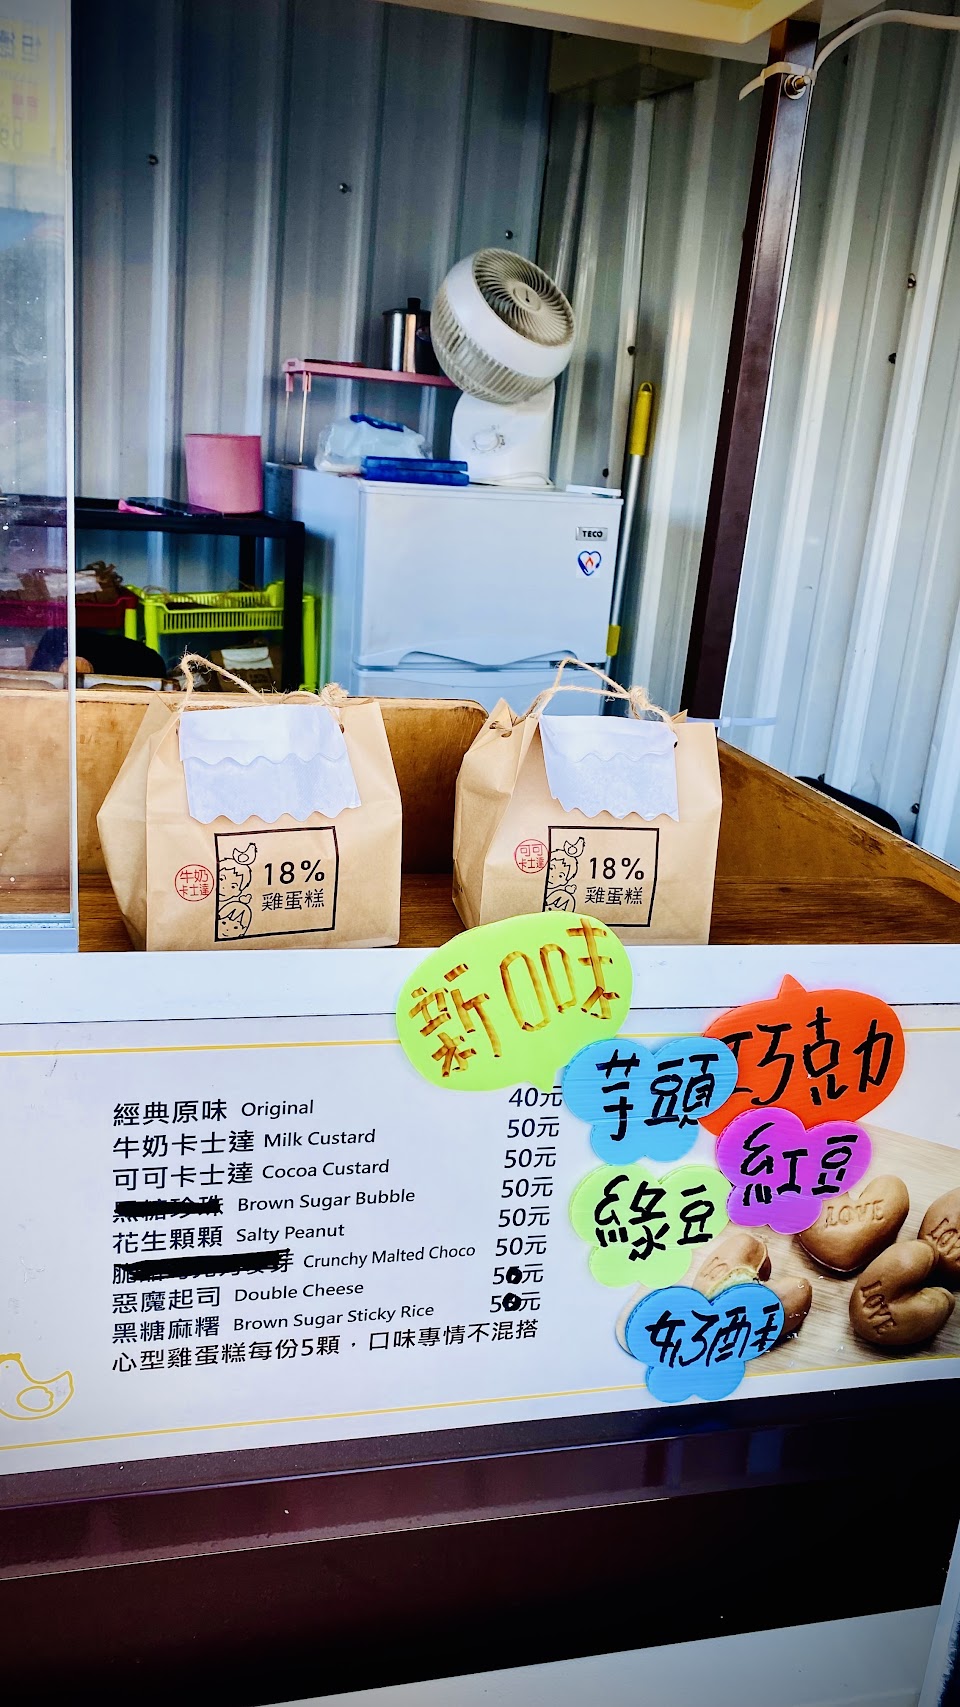 TECO
牛奶
卡士達
18%
雞蛋糕
可可
卡士達
18%
雞蛋糕
新口味
芋頭
巧克力
紅豆
綠豆
奶酥
經典原味 Original 40元
牛奶卡士達 Milk Custard 50元
可可卡士達 Cocoa Custard 50元
黑糖珍珠 Brown Sugar Bubble 50元
花生顆顆 Salty Peanut 50元
Crunchy Malted Choco 50元
惡魔起司 Double Cheese 50元
黑糖麻糬 Brown Sugar Sticky Rice 50元
心型雞蛋糕每份5顆，口味專情不混搭
LOVE
LOVE